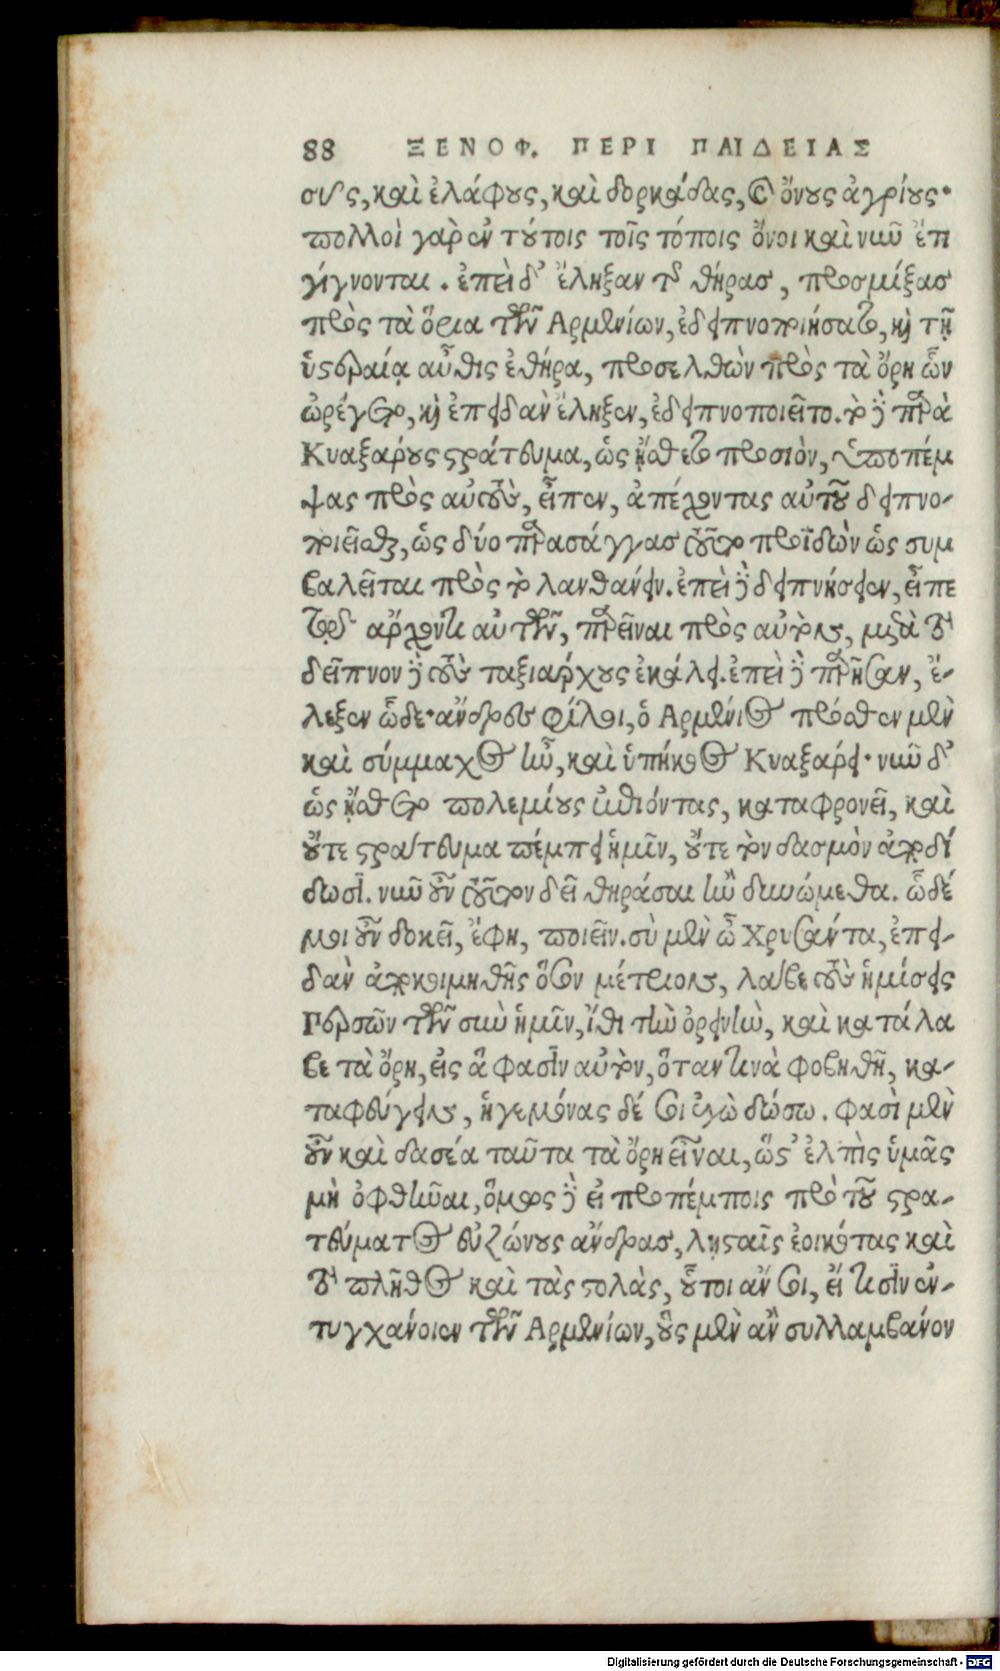 88 ΞΕΝΟΦ. ΠΕΡΙ ΠΑΙΔΕΙΑΣ
σῦς, καὶ ἐλάφους, καὶ δορκάδας, καὶ ὄνους ἀγρίους·
πολλοὶ γὰρ ἐν τούτοις τοῖς τόποις ὄνοι καὶ νῦν ἔτι
γίγνονται. ἐπεὶ δ' ἔληξαν τῆς θήρας, προσμίξας
πρὸς τὰ ὅρια τῶν Αρμενίων, ἐδειπνοποιήσατο, καὶ τῇ
ὑστεραίᾳ αὖθις ἐθήρα, προσελθὼν πρὸς τὰ ὄρη ὧν
ὠρέγετο, καὶ ἐπειδὰν ἔληξεν, ἐδειπνοποιεῖτο. τὸ δὲ παρὰ
Κυαξάρους στράτευμα, ὡς ᾔσθετο προσιὸν, ὑποπέμ
ψας πρὸς αὐτοὺς, εἶπεν, ἀπέχοντας αὐτοῦ δειπνο-
ποιεῖσθαι, ὡς δύο παρασάγγας τοῦτο προϊδὼν ὡς συμ
βαλεῖται πρὸς τὸ λανθάνειν. ἐπεὶ δὲ δειπνήσειεν, εἶπε
τῷ ἄρχοντι αὐτῶν, παρεῖναι πρὸς αὐτὸν, μετὰ τὸ
δεῖπνον δὲ τοὺς ταξιάρχους ἐκάλει. ἐπεὶ δὲ παρῆσαν, ἔ-
λεξεν ὧδε· ἄνδρες φίλοι, ὁ Αρμένιος πρόσθεν μὲν
καὶ σύμμαχος ἦν, καὶ ὑπήκοος Κυαξάρει· νῦν δ'
ὡς ᾔσθετο πολεμίους ἐπιόντας, καταφρονεῖ, καὶ
οὔτε στράτευμα πέμπει ἡμῖν, οὔτε τὸν δασμὸν ἀποδί
δωσι. νῦν οὖν τοῦτον δεῖ θηράσαι ἢν δυνώμεθα. ὧδέ
μοι οὖν δοκεῖ, ἔφη, ποιεῖν. σὺ μὲν ὦ Χρυσάντα, ἐπει-
δὰν ἀποκοιμηθῇς ὅσον μέτριον, λαβε τοὺς ἡμίσεις
Περσῶν τῶν σὺν ἡμῖν, ἴθι τὴν ὀρεινὴν, καὶ κατάλα
βε τὰ ὄρη, εἰς ἅ φασιν αὐτὸν, ὅταν τινὰ φοβηθῇ, κα-
ταφεύγειν, ἡγεμόνας δέ σοι ἐγὼ δώσω. φασὶ μὲν
οὖν καὶ δασέα ταῦτα τὰ ὄρη εἶναι, ὥστ' ἐλπὶς ὑμᾶς
μὴ ὀφθῆναι, ὅμως δὲ εἰ προπέμποις πρὸ τοῦ στρα-
τεύματος εὐζώνους ἄνδρας, λῃσταῖς ἐοικότας καὶ
τὸ πλῆθος καὶ τὰς στολὰς, οὗτοι ἄν σοι, εἴ τισιν ἐν-
τυγχάνοιεν τῶν Αρμενίων, οὓς μὲν ἂν συλλαμβάνον
Digitalisierung gefördert durch die Deutsche Forschungsgemeinschaft - DFG